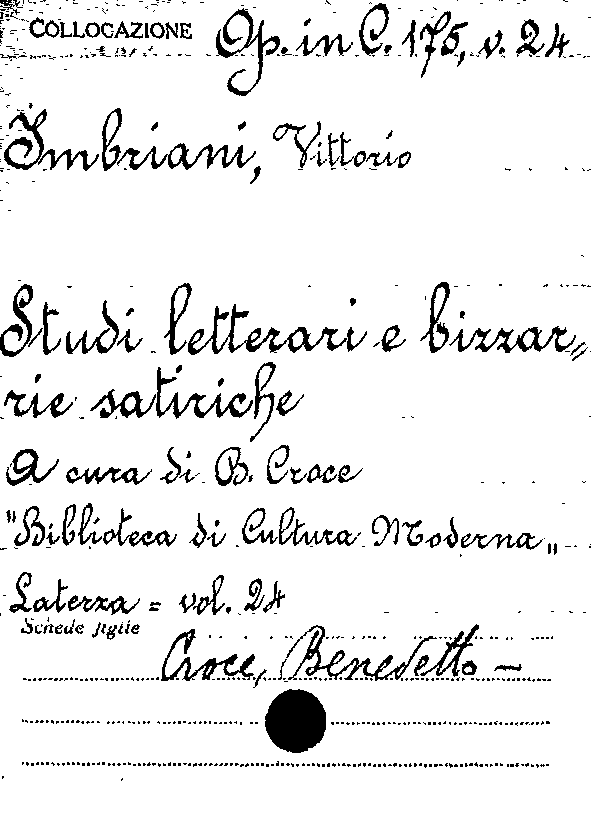 COLLOCAZIONE Op. in C. 175, v. 24
Imbriani, Vittorio
Studi letterari e bizzar„
rie satiriche
A cura di B. Croce
"Biblioteca di Cultura Moderna„
Laterza = vol. 24
Schede figlie
Croce, Benedetto —